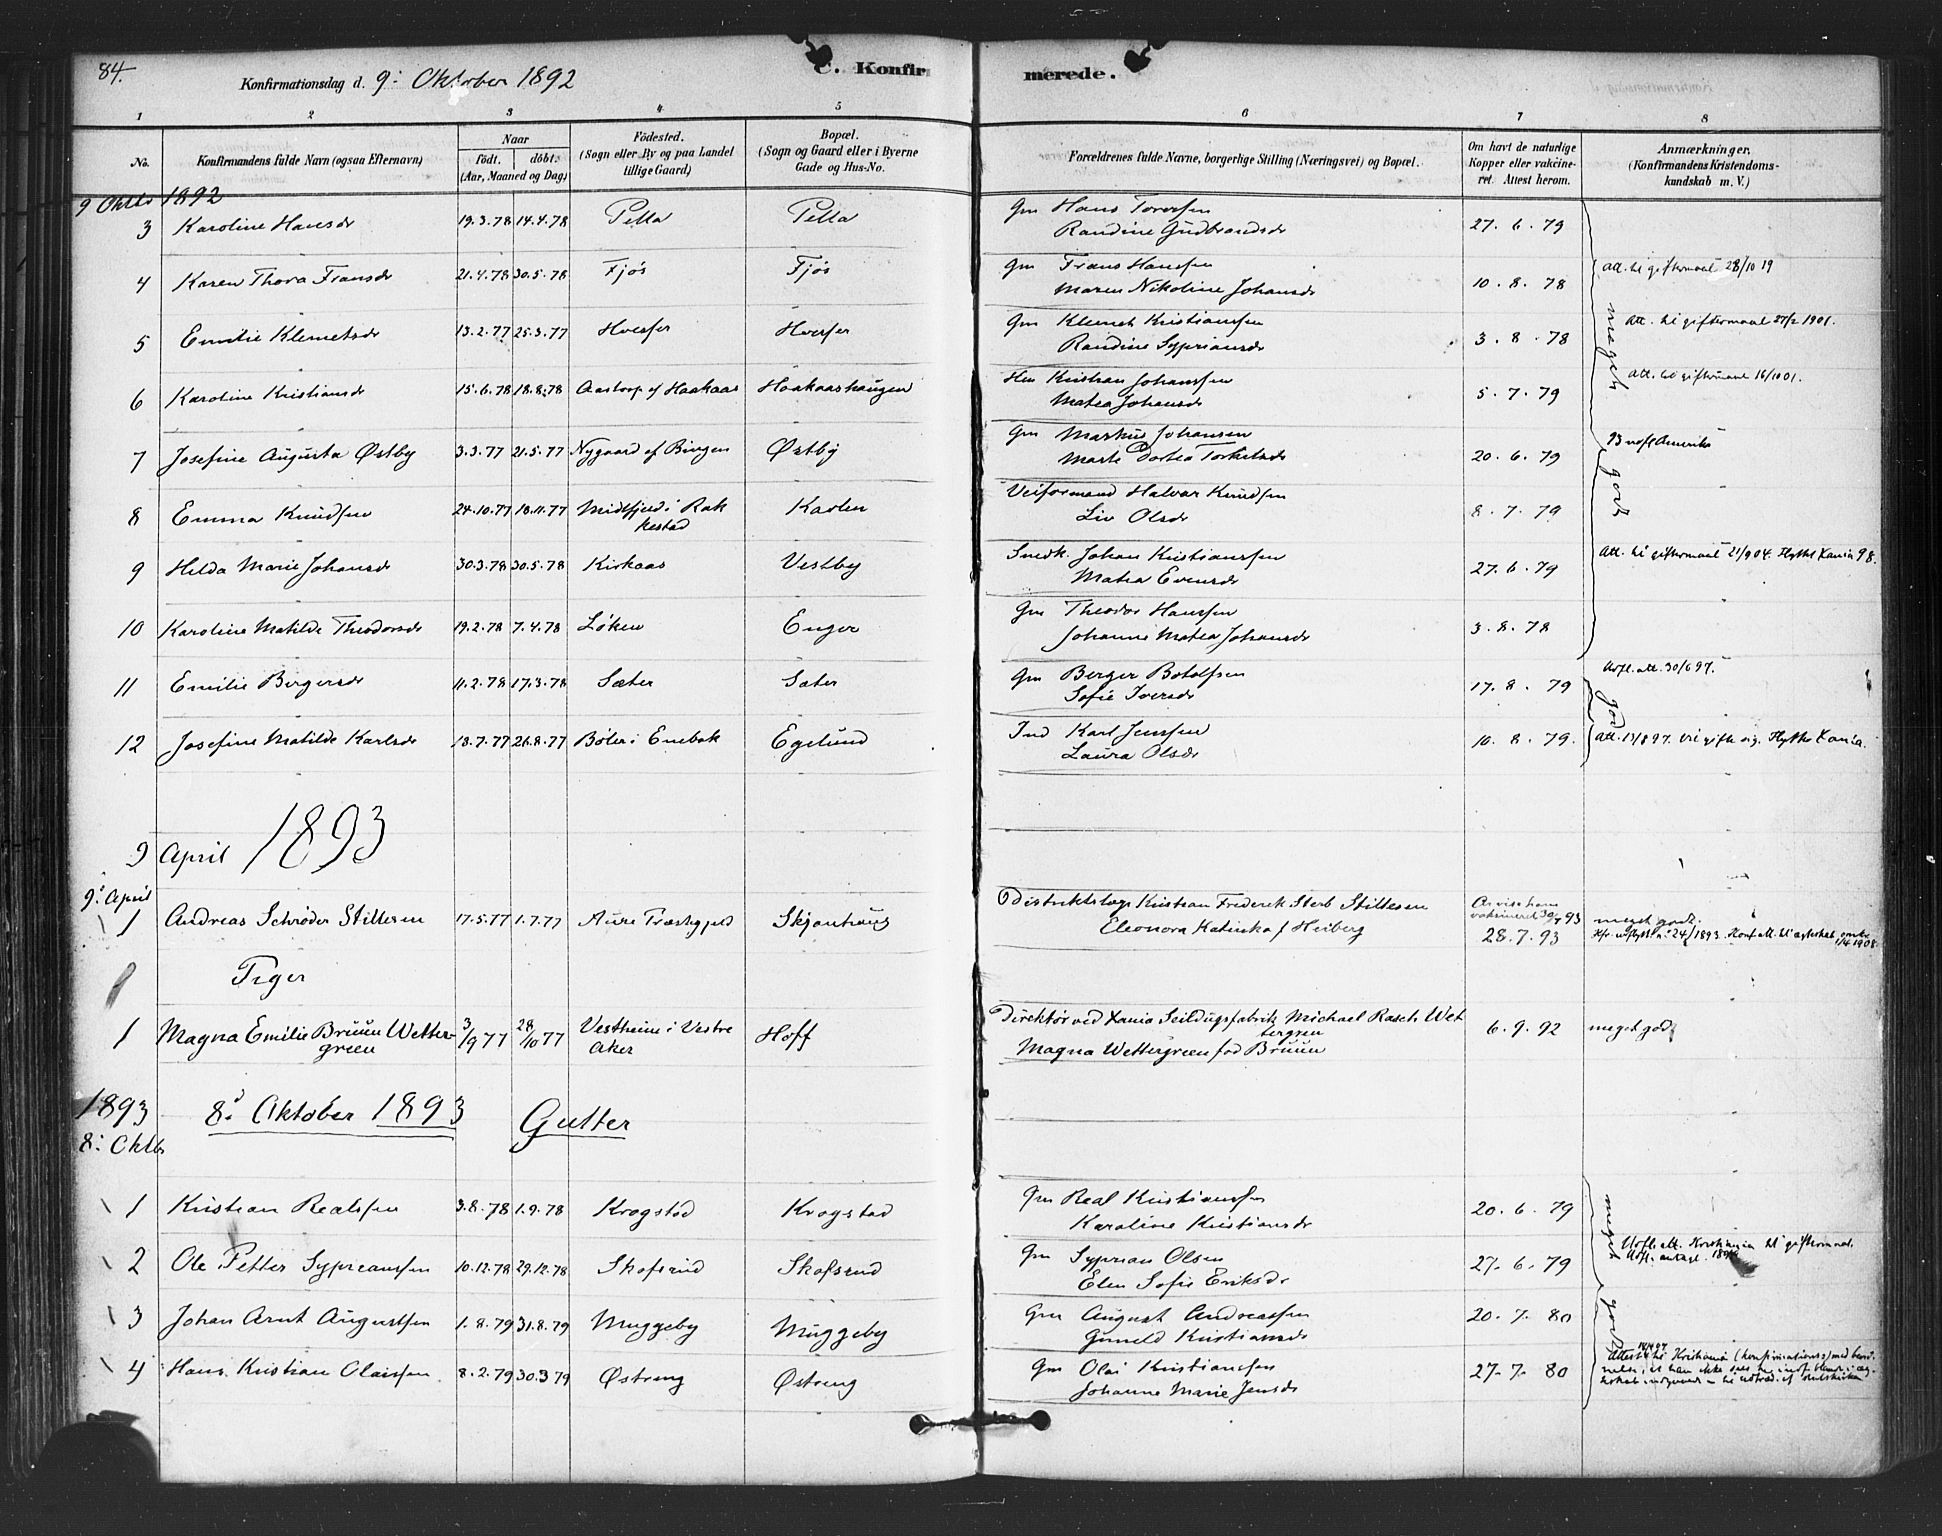 84.
Konfirmationsdag d. 9: Oktober 1892
C. Konfirmerede.
1 2 3 4 5 6 7 8
No.
Konfirmandens fulde Navn (ogsaa Efternavn)
Naar
födt. döbt.
(Aar, Maaned og Dag)
Födested.
(Sogn eller By og paa Landet
tillige Gaard.)
Bopæl.
(Sogn og Gaard eller i Byerne
Gade og Hus-No.
Forældrenes fulde Navne, borgerlige Stilling (Næringsvei) og Bopæl.
Om havt de naturlige
Kopper eller vakcine-
ret. Attest herom.
Anmærkninger.
(Konfirmandens Kristendoms-
kundskab m. V.)
9 Oktbr 1892
3 Karoline Hansdr 19.3.78 14.4.78 Pella Pella Gm Hans Torersen 27.6.79
Randine Gudbrandsdr
4 Karen Thora Fransdr 21.4.78 30.5.78 Fjøs Fjøs Gm Frans Hanssen 10.8.78 Att. til giftermaal 28/10 19
Maren Nikoline Johansdr
5 Emilie Klemetsdr 13.2.77 25.3.77 Hverser Hversер Gm Klemet Kristianssen 3.8.78 Att. til giftermaal 27/2 1901.
Randine Syprinsdr
6 Karoline Kristiansdr 15.6.78 18.8.78 Aastorp af Haakaas Haakaashaugen Hm Kristian Johanssen 5.7.79 Att. til giftermaal 16/10 01.
Matea Johansdr
meget
7 Josefine Augusta Østby 3.3.77 21.5.77 Nygaard af Bingen Østby Gm Markus Johansen 20.6.79 93 udfl Amerika
Marte Dortea Torkelsdr
godt
8 Emma Knudsen 24.10.77 18.11.77 Midtfjeld i Rak
kestad Kaslen Veiformand Halvar Knudsen 8.7.79
Liv Olsdr
9 Hilda Marie Johansdr 30.3.78 30.5.78 Kirkaas Vestby Snedk. Johan Kristianssen 27.6.79 Att. til giftermaal 21/9 04. Flyttet Xania 98.
Matea Evensdr
10 Karoline Matilde Theodorsdr 19.2.78 7.4.78 Løken Enger Gm Theodor Hanssen 3.8.78
Johanne Matea Johansdr
11 Emilie Bergersdr 11.2.78 17.3.78 Sæter Sæter Gm Berger Botolfsen 17.8.79 Udfl. att. 30/6 97.
Sofie Iversdr
godt
12 Josefine Matilde Karlsdr 18.7.77 26.8.77 Bøler i Enebak Egelund Ind Karl Jenssen 10.8.79. Att. 13/8 97. til gifte sig. Flytter Xania.
Laura Olsdr
9 April 1893
9: April
1 Andreas Schrøder Stillesen 17.5.77 1.7.77 Aure Præstegjeld Skjønhaug Distriktslæge Kristian Frederik Sterb Stillesen
28.7.93 meget godt.
Eleonora Katinka f Heiberg
Piger
1 Magna Emilie Bruun Wetter-
green 3/9 77 28/10 77 Vestheim i Vestre
Aker Hoff Direktør ved Xania Seildugsfabrik Michael Rasch Wet
tergreen 6.9.92 meget godt
Magna Wettergreen fød Bruun
1893 8: Oktober 1893 Gutter
8: Oktbr
1 Kristian Realssen 3.8.78 1.9.78 Krogstad Krogstad Gm Real Kristianssen 20.6.79 meget
Karoline Kristiansdr
2 Ole Petter Sypriansen 10.12.78 29.12.78 Skofsrud Skofsrud Gm Syprian Olsen 27.6.79 Udfl. att. Kristiania til giftermaal.
Elen Sofie Eriksdr
3 Johan Arnt Augustsen 1.8.79 31.8.79 Muggeby Muggeby Gm August Andreassen 20.7.80 godt
Gunild Kristiansdr
4 Hans Kristian Olaissen 8.2.79 30.3.79 Østreng Østreng Gm Olai Kristianssen 27.7.80
Johanne Marie Jensdr